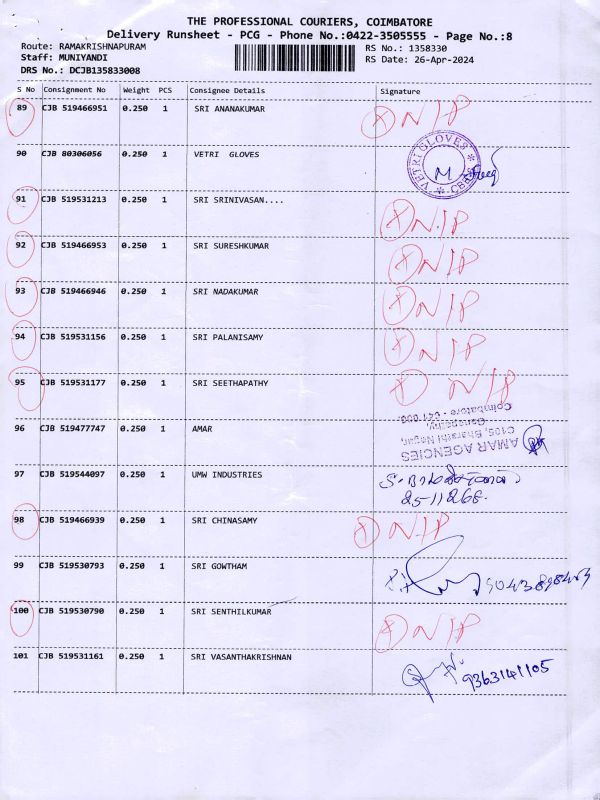 THE PROFESSIONAL COURIERS, COIMBATORE
Delivery Runsheet - PCG - Phone No.:0422-3505555 - Page No.:8
Route: RAMAKRISHNAPURAM RS No.: 1358330
Staff: MUNIYANDI RS Date: 26-Apr-2024
DRS No.: DCJB135833008
S No Consignment No Weight PCS Consignee Details Signature
89 CJB 519466951 0.250 1 SRI ANANAKUMAR X NIP
90 CJB 80306056 0.250 1 VETRI GLOVES VETRI GLOVES * CBE *
91 CJB 519531213 0.250 1 SRI SRINIVASAN.... X NIP
92 CJB 519466953 0.250 1 SRI SURESHKUMAR X NIP
93 CJB 519466946 0.250 1 SRI NADAKUMAR X NIP
94 CJB 519531156 0.250 1 SRI PALANISAMY X NIP
95 CJB 519531177 0.250 1 SRI SEETHAPATHY X NIP
96 CJB 519477747 0.250 1 AMAR
AMAR AGENCIES
C105, Bharathi Nagar,
Ganapathy,
Coimbatore - 641 006.
97 CJB 519544097 0.250 1 UMW INDUSTRIES
98 CJB 519466939 0.250 1 SRI CHINASAMY X NIP
99 CJB 519530793 0.250 1 SRI GOWTHAM
100 CJB 519530790 0.250 1 SRI SENTHILKUMAR X NIP
101 CJB 519531161 0.250 1 SRI VASANTHAKRISHNAN 9363141105